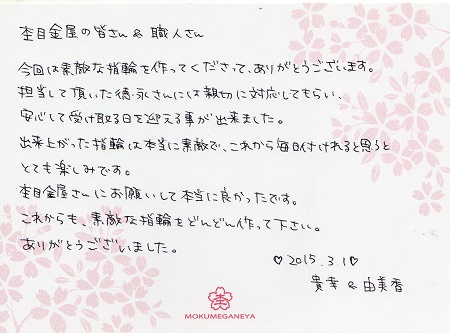 杢目金屋の皆さん & 職人さん
今回は素敵な指輪を作ってくださって、ありがとうございます。
担当して頂いた徳永さんには親切に対応してもらい、
安心して受け取る日を迎える事が出来ました。
出来上がった指輪は本当に素敵で、これから毎日付けれると思うと
とても楽しみです。
杢目金屋さんにお願いして本当に良かったです。
これからも、素敵な指輪をどんどん作って下さい。
ありがとうございました。
♡2015.3.1♡
貴幸 & 由美香
MOKUMEGANEYA